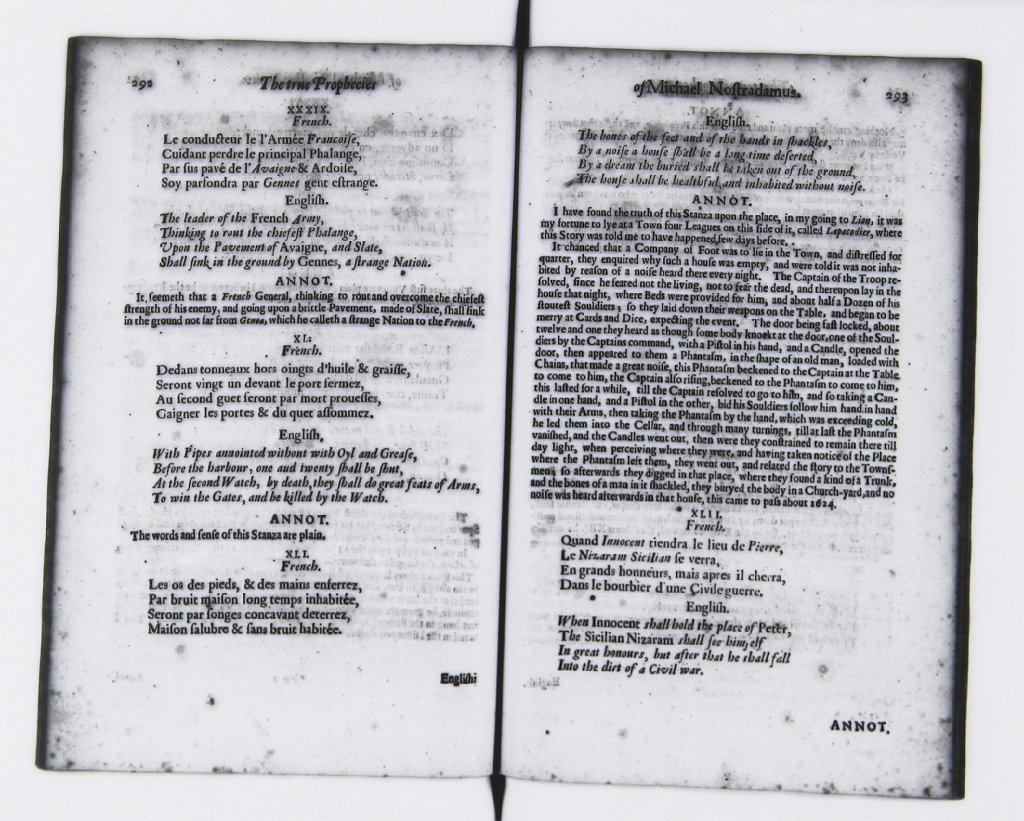 292 The true Prophecies
XXXIX.
French.
Le conducteur le l'Armée Francoise,
Cuidant perdre le principal Phalange,
Par sus pavé de l'Avaigne & Ardoise,
Soy parsondra par Gennes gent estrange.
English.
The leader of the French Army,
Thinking to rout the chiefest Phalange,
Upon the Pavement of Avaigne, and Slate,
Shall sink in the ground by Gennes, a strange Nation.
ANNOT.
It seemeth that a French General, thinking to rout and overcome the chiefest
strength of his enemy, and going upon a brittle Pavement, made of Slate, shall sink
in the ground not far from Genoa, which he calleth a strange Nation to the French.
XL.
French.
Dedans tonneaux hors oingts d'huile & graisse,
Seront vingt un devant le port fermez,
Au second guet seront par mort prouesses,
Gaigner les portes & du quet assommez.
English,
With Pipes annointed without with Oyl and Grease,
Before the harbour, one aud twenty shall be shut,
At the second Watch, by death, they shall do great feats of Arms,
To win the Gates, and be killed by the Watch.
ANNOT.
The words and sense of this Stanza are plain.
XLI.
French.
Les os des pieds, & des mains enferrez,
Par bruit maison long temps inhabitée,
Seront par songes concavant deterrez,
Maison salubre & sans bruit habitée.
English
of Michael Nostradamus. 293
English.
The bones of the feet and of the hands in shackles,
By a noise a house shall be a long time deserted,
By a dream the buried shall be taken out of the ground,
The house shall be healthful, and inhabited without noise.
ANNOT.
I have found the truth of this Stanza upon the place, in my going to Lion, it was
my fortune to lye at a Town four Leagues on this side of it, called Lapacodier, where
this Story was told me to have happened few days before.
It chanced that a Company of Foot was to lie in the Town, and distressed for
quarter, they enquired why such a house was empty, and were told it was not inha-
bited by reason of a noise heard there every night. The Captain of the Troop re-
solved, since he feared not the living, not to fear the dead, and thereupon lay in the
house that night, where Beds were provided for him, and about half a Dozen of his
stoutest Souldiers, so they laid down their weapons on the Table, and began to be
merry at Cards and Dice, expecting the event. The door being fast locked, about
twelve and one they heard as though some body knockt at the door, one of the Soul-
diers by the Captains command, with a Pistol in his hand, and a Candle, opened the
door, then appeared to them a Phantasm, in the shape of an old man, loaded with
Chains, that made a great noise, this Phantasm beckened to the Captain at the Table
to come to him, the Captain also rising, beckened to the Phantasm to come to him,
this lasted for a while, till the Captain resolved to go to him, and so taking a Can-
dle in one hand, and a Pistol in the other, bid his Souldiers follow him hand in hand
with their Arms, then taking the Phantasm by the hand, which was exceeding cold,
he led them into the Cellar, and through many turnings, till at last the Phantasm
vanished, and the Candles went out, then were they constrained to remain there till
day light, when perceiving where they were, and having taken notice of the Place
where the Phantasm left them, they went out, and related the story to the Towns-
men, so afterwards they digged in that place, where they found a kind of a Trunk,
and the bones of a man in it shackled, they buryed the body in a Church-yard, and no
noise was heard afterwards in that house, this came to pass about 1624.
XLII.
French.
Quand Innocent tiendra le lieu de Pierre,
Le Nizaram Sicilian se verra,
En grands honneurs, mais apres il cherra,
Dans le bourbier d'une Civile guerre.
English.
When Innocent shall hold the place of Peter,
The Sicilian Nizaram shall see himself
In great honours, but after that he shall fall
Into the dirt of a Civil war.
ANNOT.